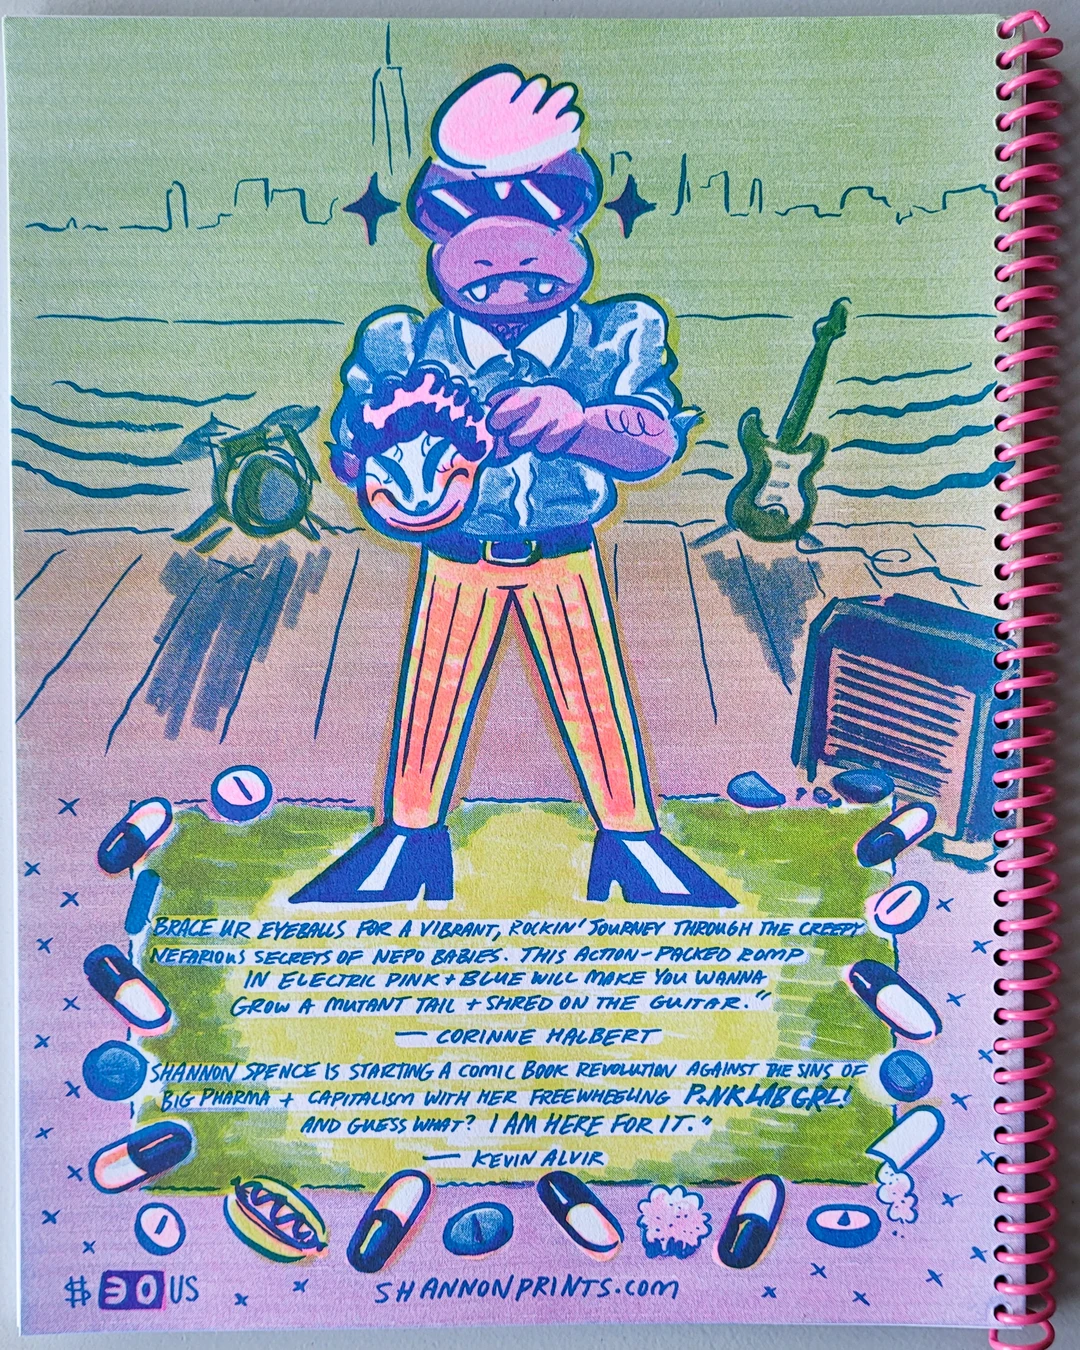 BRACE UR EYEBALLS FOR A VIBRANT, ROCKIN' JOURNEY THROUGH THE CREEPY
NEFARIOUS SECRETS OF NEPO BABIES. THIS ACTION-PACKED ROMP
IN ELECTRIC PINK + BLUE WILL MAKE YOU WANNA
GROW A MUTANT TAIL + SHRED ON THE GUITAR."
— CORINNE HALBERT
SHANNON SPENCE IS STARTING A COMIC BOOK REVOLUTION AGAINST THE SINS OF
BIG PHARMA + CAPITALISM WITH HER FREEWHEELING P.NK LAB GRL!
AND GUESS WHAT? I AM HERE FOR IT."
— KEVIN ALVIR
$30 US
SHANNONPRINTS.COM